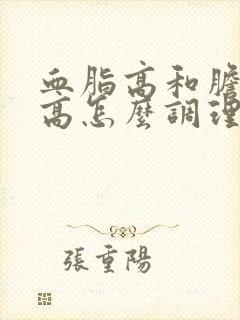 血脂高和膽
高怎麼調理
張重陽